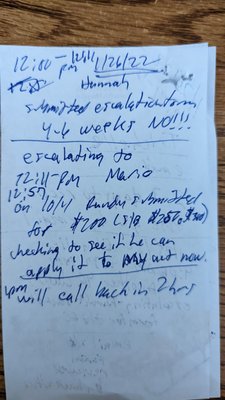 12:00 - 12:11 1/26/22
pm
Hannah
submitted escalation form
4-6 weeks NO!!!
escalating to
12:11-pm Mario
12:57
on 10/4 Randy submitted
for $200 LS/B
checking to see if he can
apply it to my act now.
1pm will call back in 2 hrs